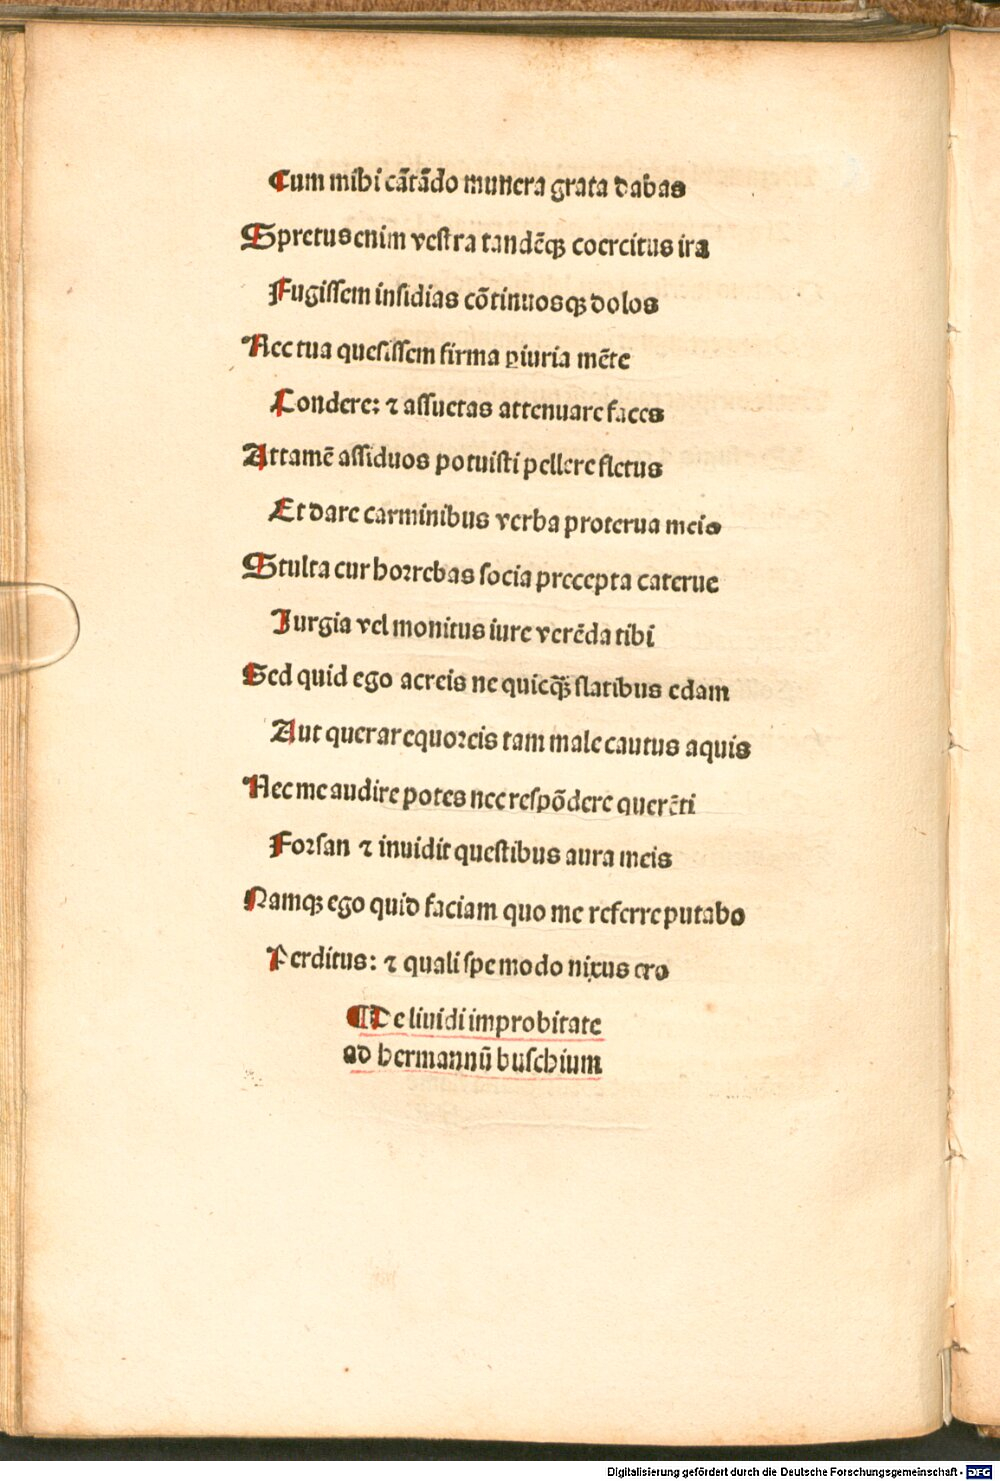 Cum mihi cātādo munera grata dabas
Spretus enim vestra tandēqꝫ coercitus ira
Fugissem insidias cōtinuosqꝫ dolos
Nec tua quesissem firma ꝑiuria mēte
Condere: ⁊ assuetas attenuare faces
Attamē assiduos potuisti pellere fletus
Et dare carminibus verba proterua meis
Stulta cur horrebas socia precepta caterue
Iurgia vel monitus iure verēda tibi
Sed quid ego aereis ne quicq̄ꝫ flatibus edam
Aut querar equoreis tam male cautus aquis
Nec me audire potes nec respōdere querēti
Forsan ⁊ inuidit questibus aura meis
Namqꝫ ego quid faciam quo me referre putabo
Perditus: ⁊ quali spe modo nixus ero
¶ De liuidi improbitate
ad hermannū buschium
Digitalisierung gefördert durch die Deutsche Forschungsgemeinschaft - DFG